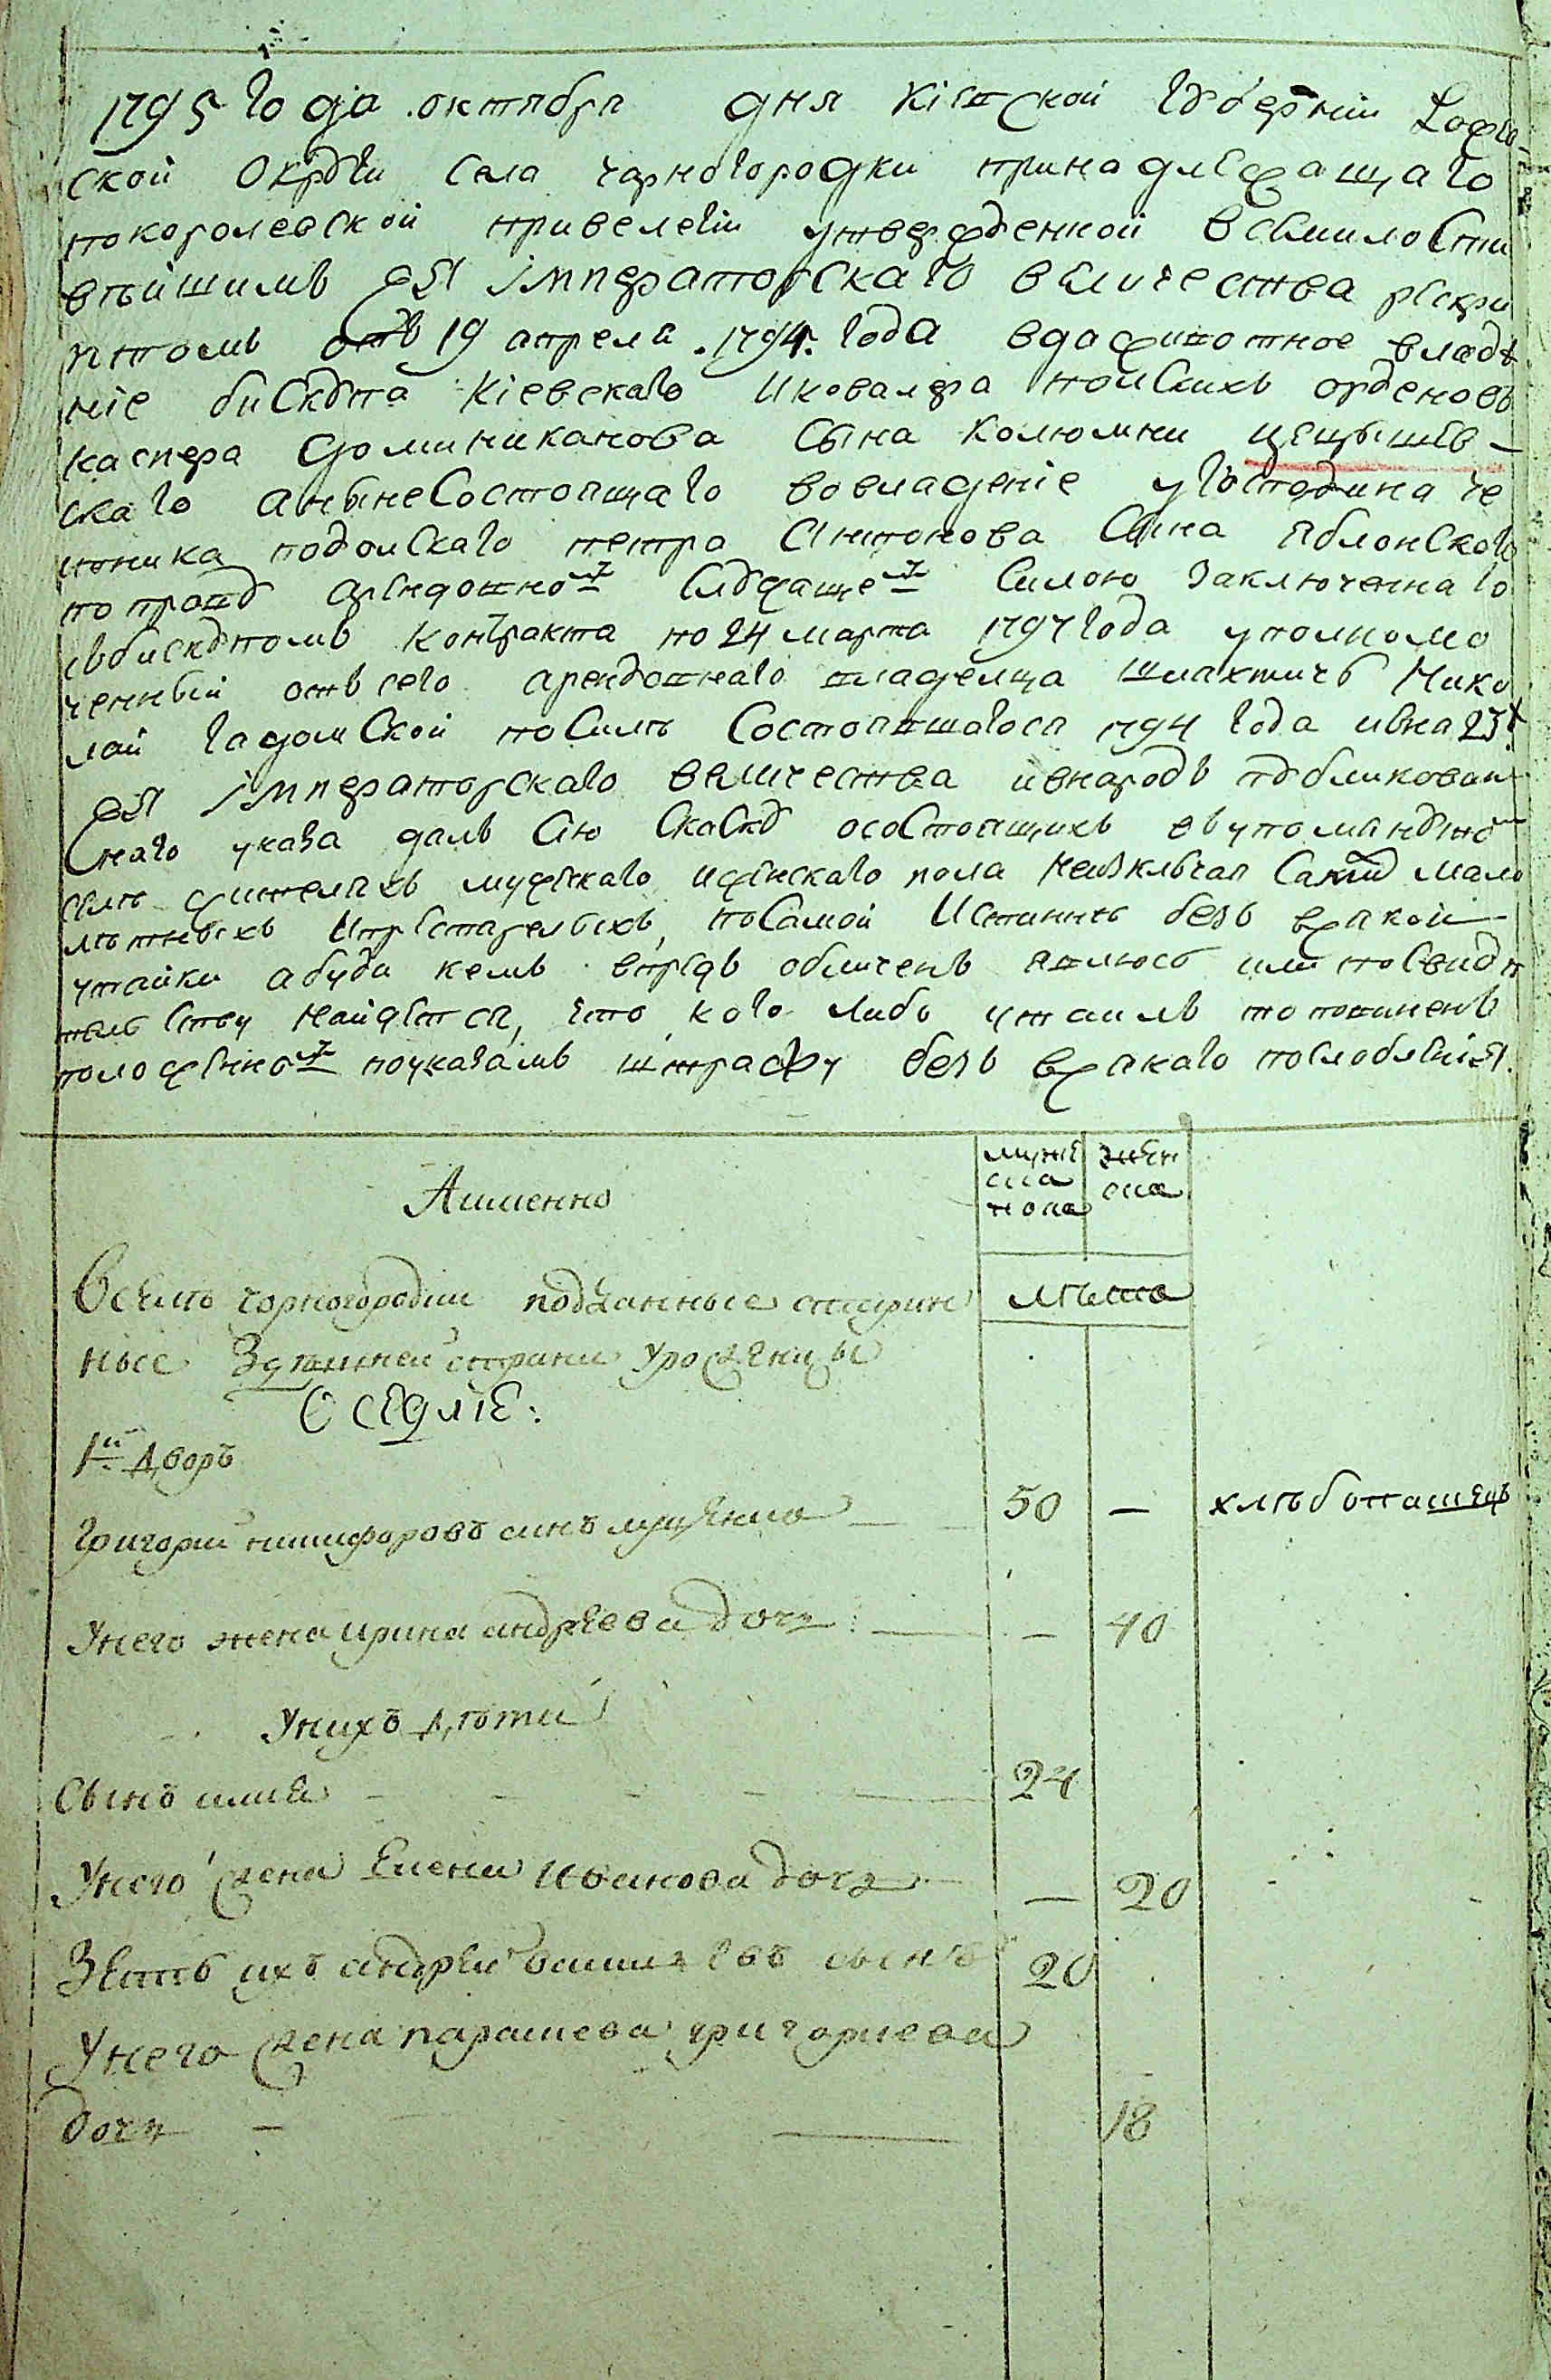 1795 года октября дня кiевской губернiи Софiе
ской округи села чарногородки принадлежащаго
покоролевской привелегiи утвержденной всемилости
вѣйшимъ ея iмператорскаго величества рескри
птомъ отъ 19 апреля 1794 года вдаживотное владѣ
нiе бискупа кiевскаго икавалера польскихъ орденовъ
каспера доминиканова сына колюмни цецышев-
скаго анынесостоящаго вовладенiе угосподина че
сника подольскаго петра антонова сына яблонскаго
поправу арендовному следующему силою заключеннаго
сбискупомъ контракта по 24 марта 1797 года уполномо
ченный отъ сего арендовнаго владельца шляхтичъ Нико
лай гадомской посилѣ состоявшагося 1794 года июня 23 х
ея iмператорскаго величества ивнародъ публикован
наго указа далъ сiю скаску осостоящихъ въупомянутомъ
селѣ жителяхъ мужескаго иженскаго пола неизключая самыхъ мало
лѣтныхъ ипрестарелыхъ, посамой истиннѣ безъ всякой
утайки абуди кемъ впредь обличенъ явлюсь или посвидѣ
тельству найдется, что кого либо утаилъ то повиненъ
положенному поуказамъ штрафу безъ всякаго послобленiя.
Аименно
муже
ска
пола
жен
ска
лѣта
Оселѣ чорногородки подданные старин
ные Здѣшней страни уроженцы
Оседлiе:
1й Дворъ
григорий никифоровъ синъ муженко 50 — хлѣбопашецъ
Унего жена ирина андреева дочь — 40
Унихъ дѣти
Сынъ илия 24
Унего жена Елена иванова дочь — 20
Зять ихъ андрей василевъ сынъ 20
Унего жена парасчева григориева
дочь — 18